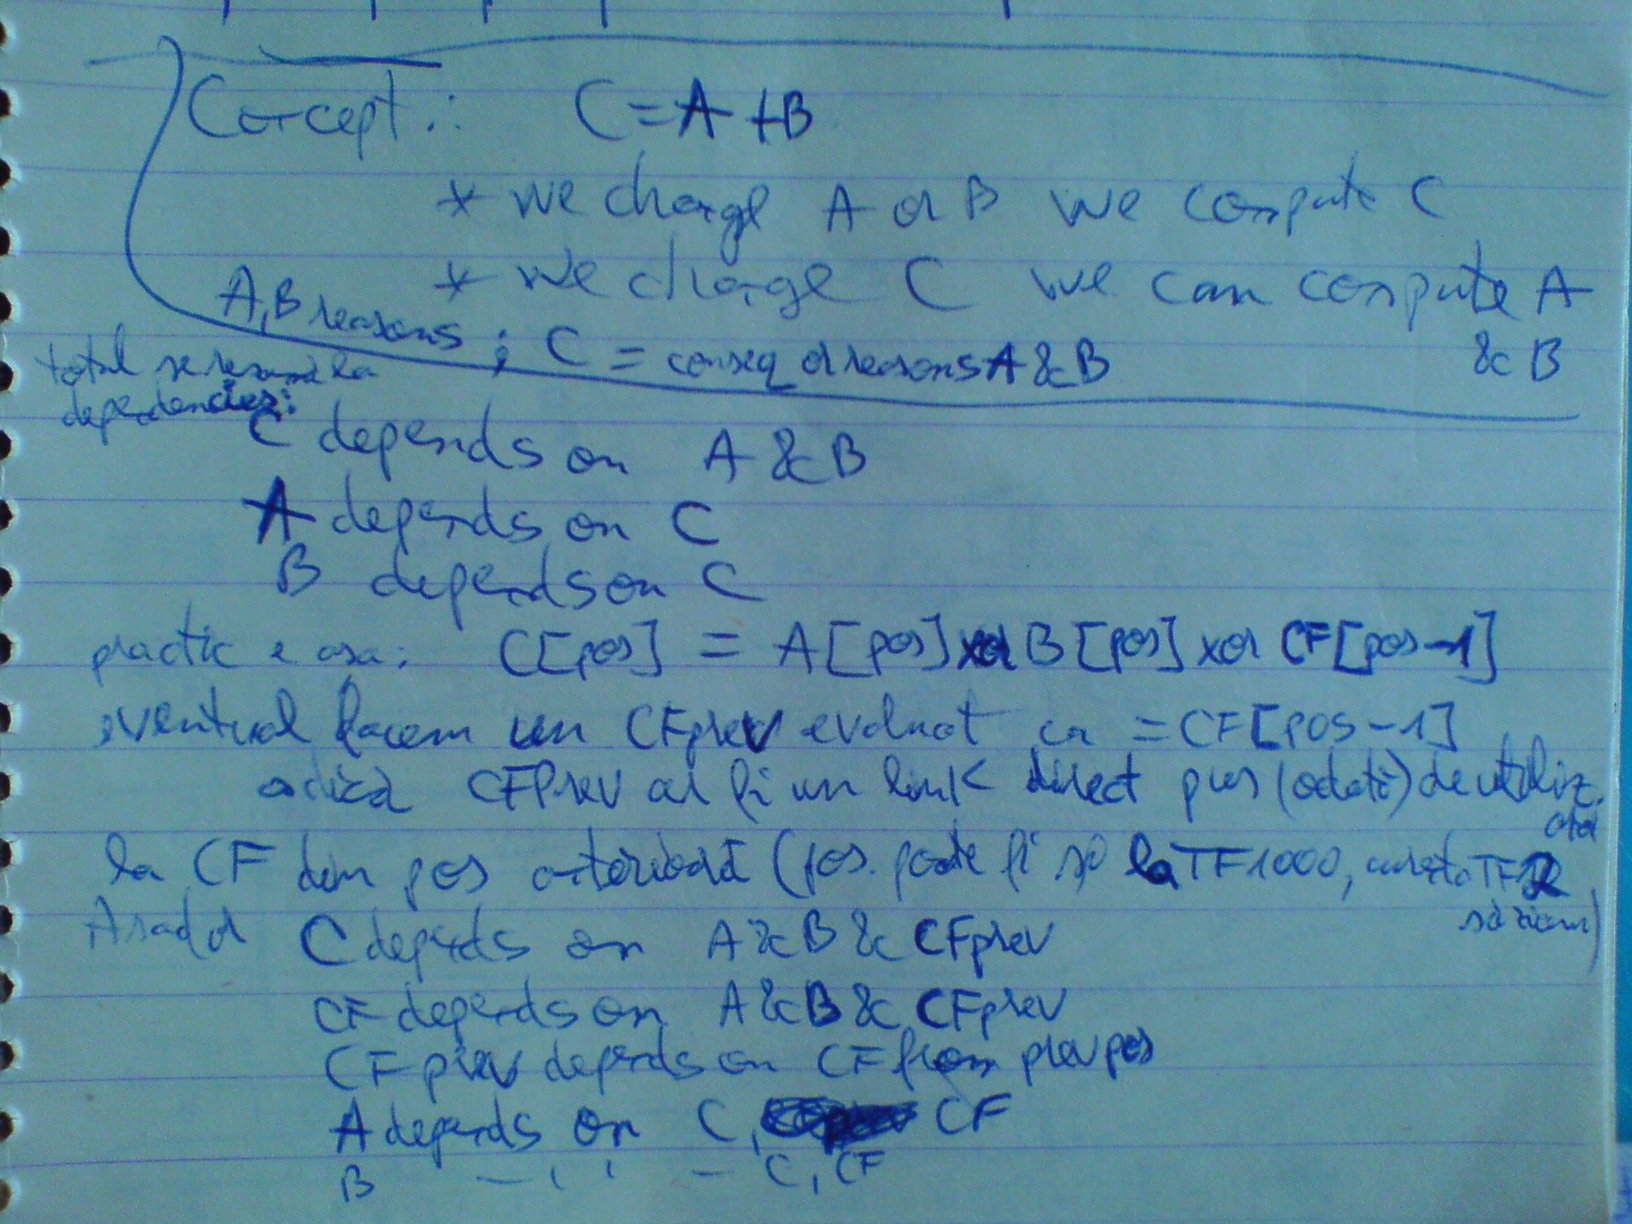 Concept: C=A+B
* we change A or B we compute C
* we change C we can compute A
& B
A,B reasons; C = conseq of reasons A&B
total se rezuma la
dependencies:
C depends on A & B
A depends on C
B depends on C
practic e asa: C[pos] = A[pos] xor B[pos] xor CF[pos-1]
eventual facem un CFprev evaluat ca =CF[pos-1]
adica CFPrev ar fi un link direct pus (odata) de utiliz.
ator
la CF din pos anterioara (pos. poate fi si la TF1000, curenta TF2
sa zicem)
Asadar C depends on A&B& CFprev
CF depends on A&B& CFprev
CFprev depends on CF from prev pos
A depends on C, CF
B — ' ' — C, CF